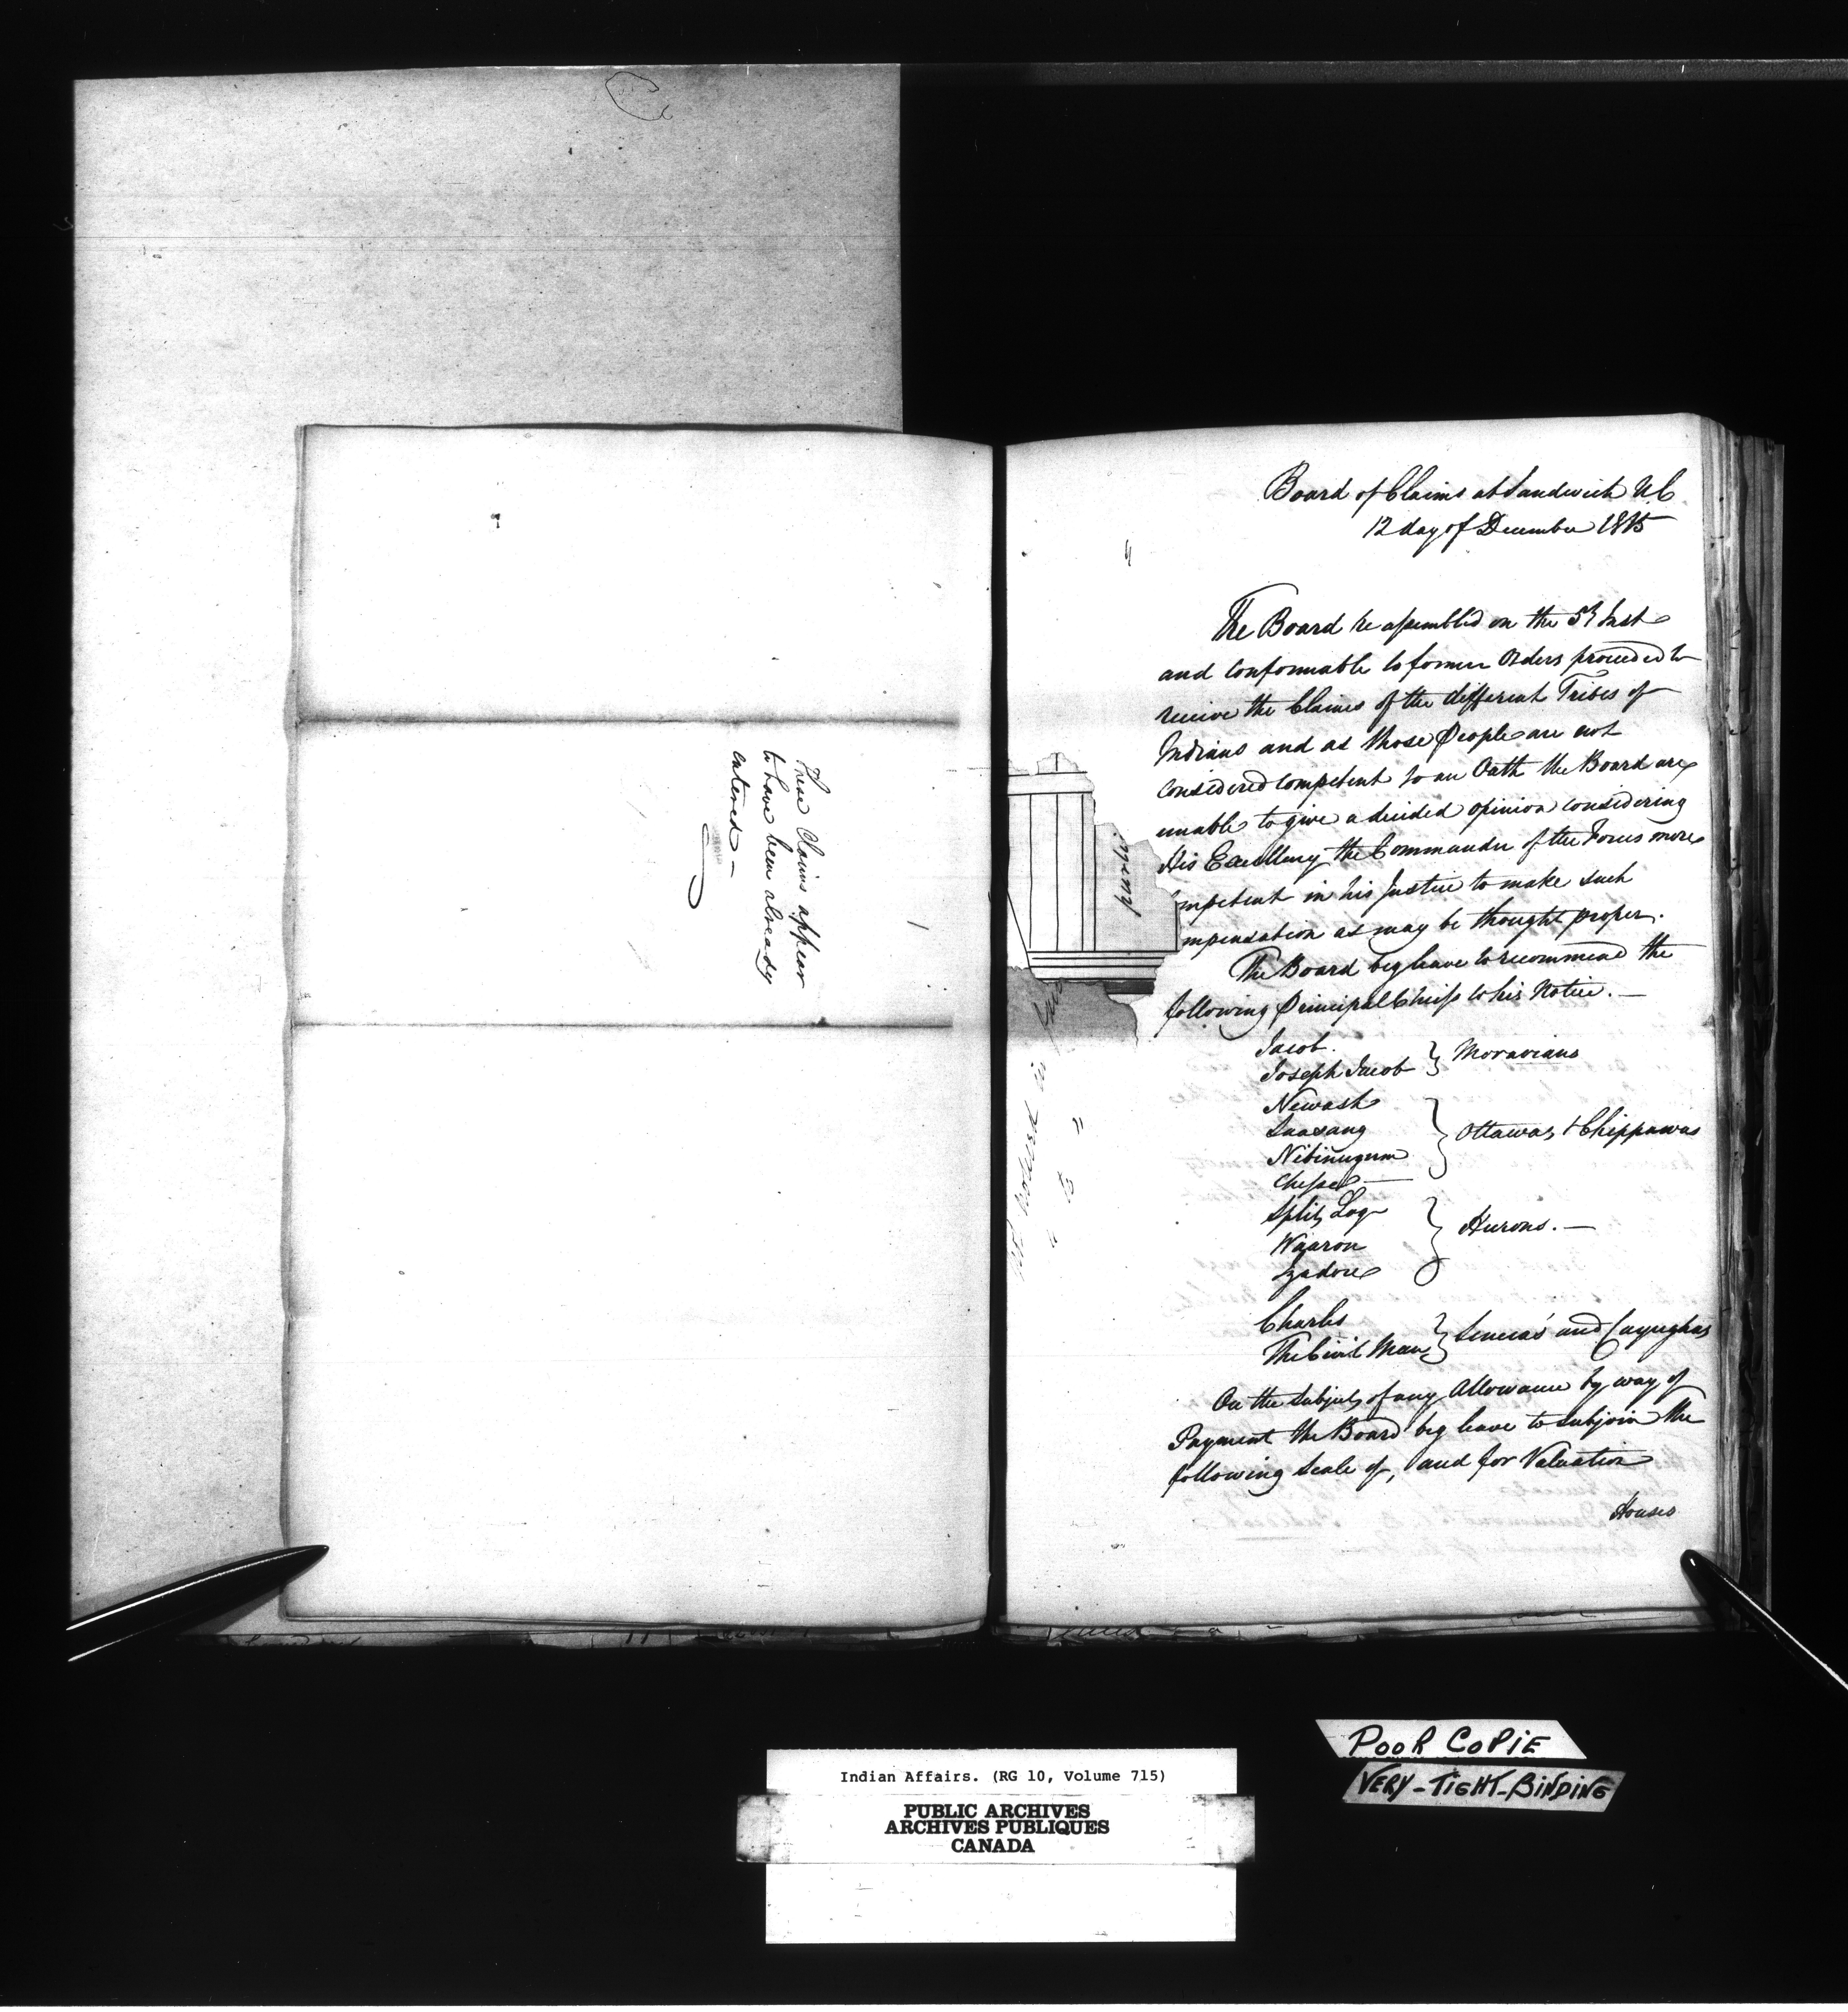 These Claims appear
to have been already
entered —
Board of Claims at Sandwich U.C
12 day of December 1815
The Board re assembled on the 5th Inst
and conformable to former Orders proceeded to
receive the Claims of the different Tribes of
Indians and as those People are not
considered competent to an Oath the Board are
unable to give a decided opinion considering
His Excellency the Commander of the Forces more
mpetent in his Justice to make such
mpensation as may be thought proper.
The Board beg leave to recommend the
following Principal Chiefs to his Notice. —
Jacob.
Joseph Jacob } Moravians
Newash
Saasang
Nibinugum } Ottawas & Chippawas
Split Log
Waaron } Hurons. —
Izadore
Charles
The Civil Man } Seneca's and Cayughas
On the Subject of any Allowance by way of
Payment the Board beg leave to subjoin the
following Scale of, and for Valuation
Houses
POOR COPIE
VERY-TIGHT-BINDING
Indian Affairs. (RG 10, Volume 715)
PUBLIC ARCHIVES
ARCHIVES PUBLIQUES
CANADA